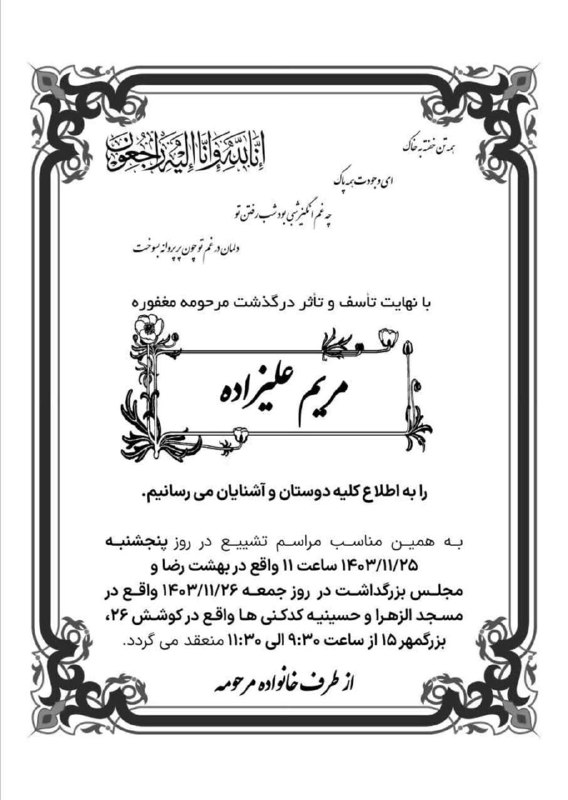 إنا لله وإنا إليه راجعون
همه تن خفته به خاک
ای وجودت همه پاک
چه غم انگیز شبی بود شب رفتن تو
دلمان در غم تو چون پر پروانه بسوخت
با نهایت تأسف و تأثر درگذشت مرحومه مغفوره
مریم علیزاده
را به اطلاع کلیه دوستان و آشنایان می رسانیم.
به همین مناسب مراسم تشییع در روز پنجشنبه
۱۴۰۳/۱۱/۲۵ ساعت ۱۱ واقع در بهشت رضا و
مجلس بزرگداشت در روز جمعه ۱۴۰۳/۱۱/۲۶ واقع در
مسجد الزهرا و حسینیه کدکنی ها واقع در کوشش ۲۶،
بزرگمهر ۱۵ از ساعت ۹:۳۰ الی ۱۱:۳۰ منعقد می گردد.
از طرف خانواده مرحومه